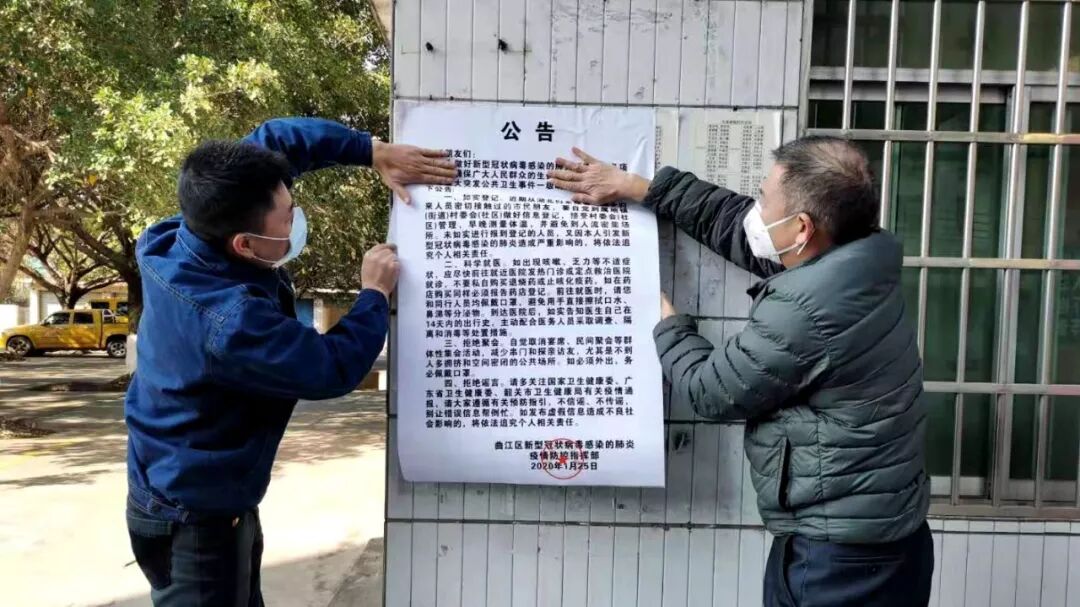 公告
朋友们：
做好新型冠状病毒感染的肺
确保广大人民群众的生
大突发公共卫生事件一级
下公告
一、如实登记。近期从湖北
来人员密切接触过的市民朋友，要自觉到属地镇
(街道)村委会(社区)做好信息登记，接受村委会(社
区)管理，早晚测量体温，并避免到人流密集场
所。未如实进行报到登记的人员，又因本人引发新
型冠状病毒感染的肺炎造成严重影响的，将依法追
究个人相关责任。
二、科学就医。如出现咳嗽、乏力等不适症
状，应尽快前往就近医院发热门诊或定点救治医院
就诊，不要私自购买退烧药或止咳化痰药，如在药
店购买同样必须报告药店登记。前往就医时，请您
和同行人员均佩戴口罩，避免用手直接擦拭口水、
鼻涕等分泌物。到达医院后，如实告知医生自己在
14天内的出行史，主动配合医务人员采取调查、隔
离和消毒等处置措施。
三、拒绝聚会。自觉取消宴席、民间聚会等群
体性集会活动，减少串门和探亲访友，尤其是不到
人多拥挤和空间密闭的公共场所。如必须外出，务
必佩戴口罩。
四、拒绝谣言。请多关注国家卫生健康委、广
东省卫生健康委、韶关市卫生健康局有关疫情通
报，请大家遵循有关预防指引，不信谣、不传谣，
别让错误信息帮倒忙。如发布虚假信息造成不良社
会影响的，将依法追究个人相关责任。
曲江区新型冠状病毒感染的肺炎
疫情防控指挥部
2020年1月25日